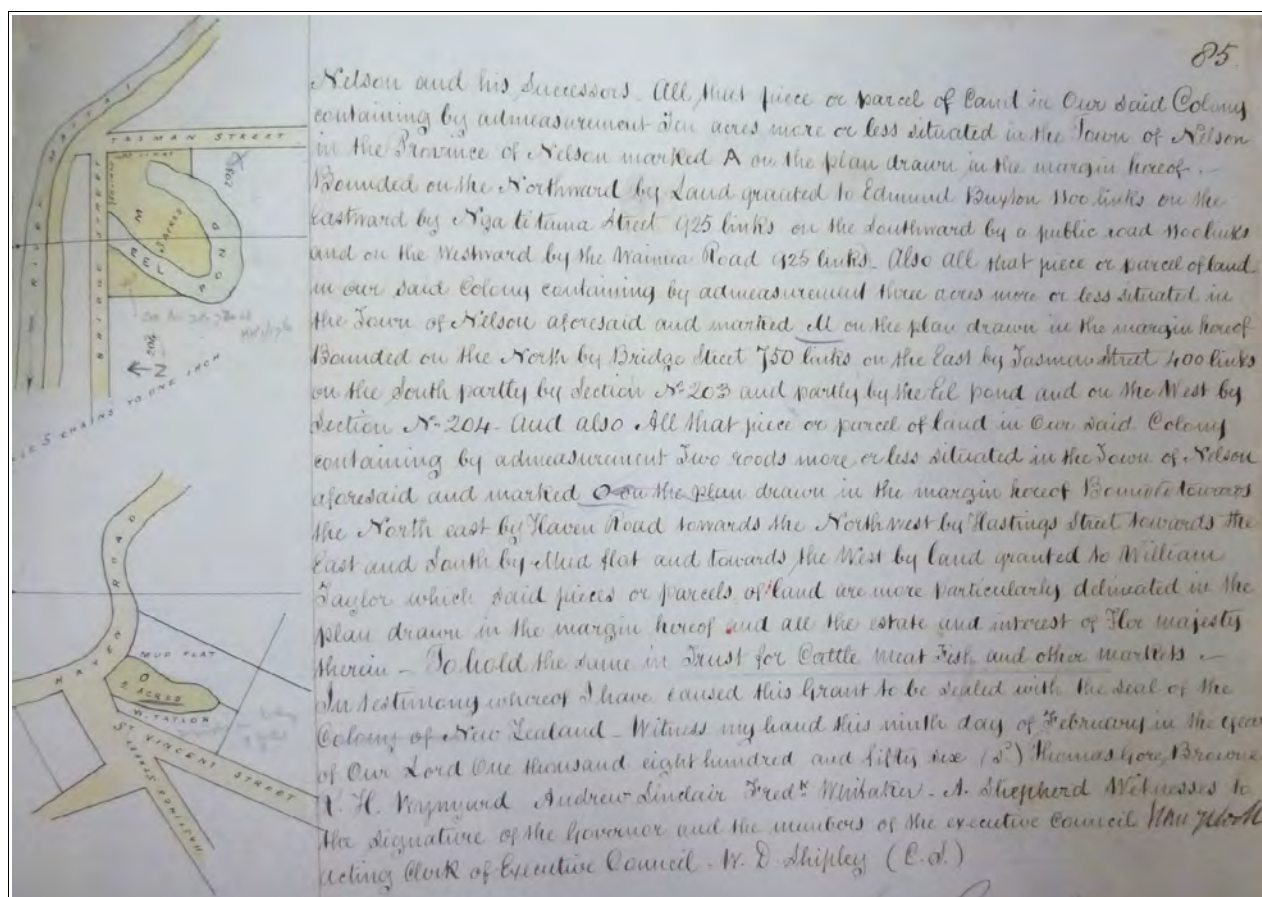 85.
Nelson and his Successors. All that piece or parcel of land in Our said Colony
containing by admeasurement Ten acres more or less situated in the Town of Nelson
in the Province of Nelson marked A on the plan drawn in the margin hereof. —
Bounded on the Northward by Land granted to Edmund Buxton 1100 links on the
Eastward by Nga ti tuma Street 925 links on the Southward by a public road 1100 links
and on the Westward by the Waimea Road 925 links. Also all that piece or parcel of land
in our said Colony containing by admeasurement three acres more or less situated in
the Town of Nelson aforesaid and marked M on the plan drawn in the margin hereof
Bounded on the North by Bridge Street 750 links on the East by Tasman Street 400 links
on the South partly by Section No 203 and partly by the Eel pond and on the West by
Section No 204. And also All that piece or parcel of land in Our said Colony
containing by admeasurement Two roods more or less situated in the Town of Nelson
aforesaid and marked O on the plan drawn in the margin hereof Bounded towards
the North east by Haven Road towards the Northwest by Hastings Street towards the
East and South by Mud flat and towards the West by land granted to William
Taylor which said pieces or parcels of land are more particularly delineated in the
plan drawn in the margin hereof and all the estate and interest of Her majesty
therein — To hold the same in Trust for Cattle meat Fish and other markets. —
In testimony whereof I have caused this Grant to be sealed with the seal of the
Colony of New Zealand — Witness my hand this ninth day of February in the year
of Our Lord One thousand eight hundred and fifty six (s) Thomas Gore Browne
R. H. Wynyard Andrew Sinclair Fredk Whitaker — A. Shepherd Witnesses to
the signature of the Governor and the members of the executive Council
acting Clerk of Executive Council — W. D. Shipley (C.S.)
RIVER MAITAI
TASMAN STREET
BRIDGE STREET
M
EEL
POND
203
204
N
5 CHAINS TO ONE INCH
HAVEN ROAD
MUD FLAT
O
2 ACRES
W. TAYLOR
ST VINCENT STREET
HASTINGS STREET